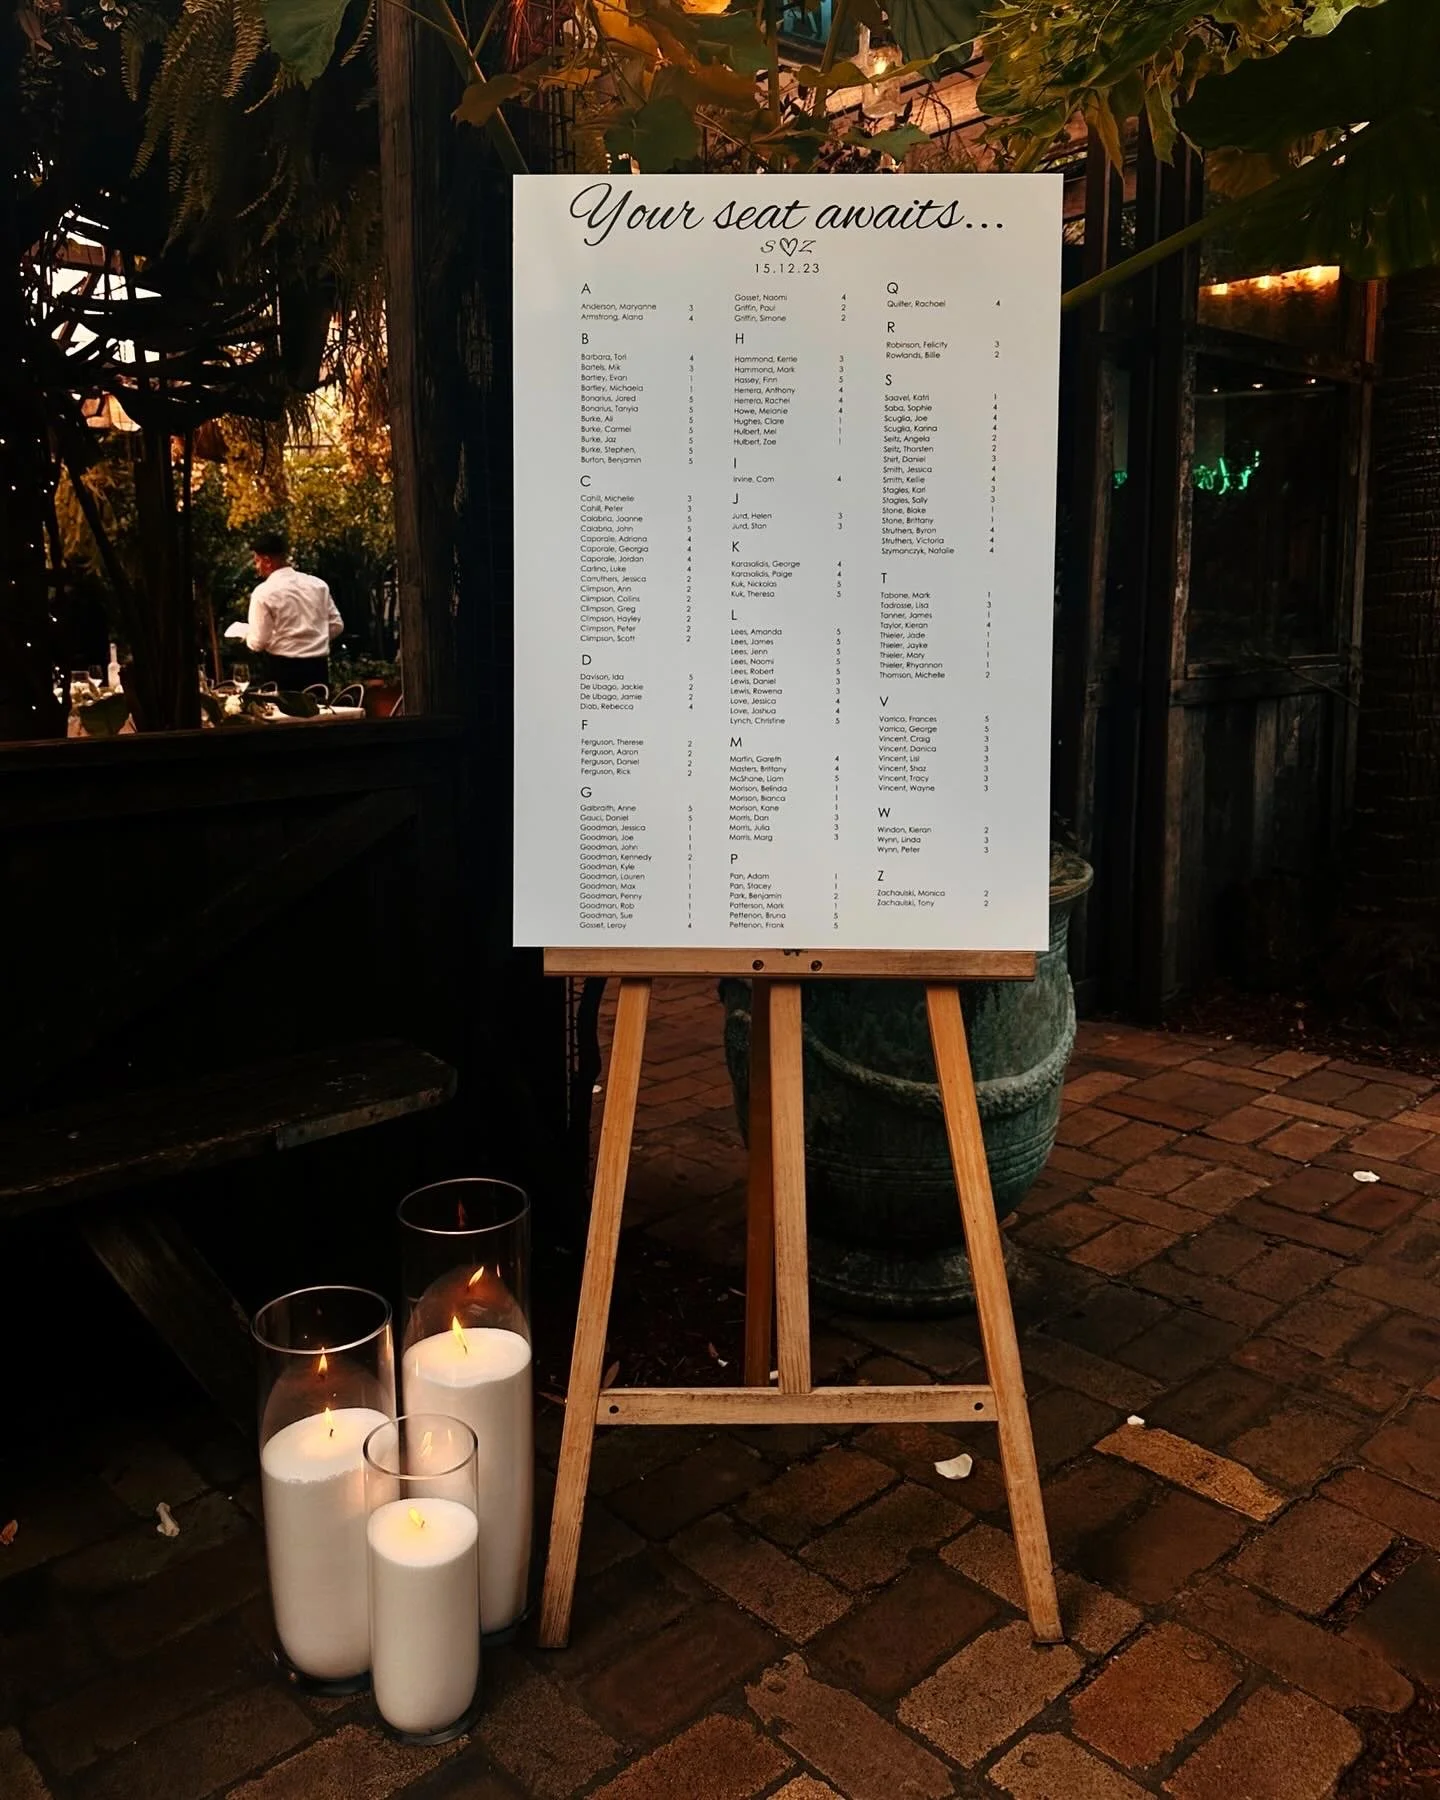 Your seat awaits...
S♡Z
15.12.23
A
Anderson, Maryanne 3
Armstrong, Alana 4
B
Barbara, Tori 4
Bartels, Mik 3
Bartley, Evan 1
Bartley, Michaela 1
Bonarius, Jared 5
Bonarius, Tanyia 5
Burke, Ali 5
Burke, Carmel 5
Burke, Jaz 5
Burke, Stephen, 5
Burton, Benjamin 5
C
Cahill, Michelle 3
Cahill, Peter 3
Calabria, Joanne 5
Calabria, John 5
Caporale, Adriana 4
Caporale, Georgia 4
Caporale, Jordan 4
Carlino, Luke 4
Carruthers, Jessica 2
Climpson, Ann 2
Climpson, Collins 2
Climpson, Greg 2
Climpson, Hayley 2
Climpson, Peter 2
Climpson, Scott 2
D
Davison, Ida 5
De Ubago, Jackie 2
De Ubago, Jamie 2
Diab, Rebecca 4
F
Ferguson, Therese 2
Ferguson, Aaron 2
Ferguson, Daniel 2
Ferguson, Rick 2
G
Galbraith, Anne 5
Gauci, Daniel 5
Goodman, Jessica 1
Goodman, Joe 1
Goodman, John 1
Goodman, Kennedy 2
Goodman, Kyle 1
Goodman, Lauren 1
Goodman, Max 1
Goodman, Penny 1
Goodman, Rob 1
Goodman, Sue 1
Gosset, Leroy 4
Gosset, Naomi 4
Griffin, Paul 2
Griffin, Simone 2
H
Hammond, Kerrie 3
Hammond, Mark 3
Hassey, Finn 5
Herrera, Anthony 4
Herrera, Rachel 4
Howe, Melanie 4
Hughes, Clare 1
Hulbert, Mel 1
Hulbert, Zoe 1
I
Irvine, Cam 4
J
Jurd, Helen 3
Jurd, Stan 3
K
Karasalidis, George 4
Karasalidis, Paige 4
Kuk, Nickolas 5
Kuk, Theresa 5
L
Lees, Amanda 5
Lees, James 5
Lees, Jenn 5
Lees, Naomi 5
Lees, Robert 5
Lewis, Daniel 3
Lewis, Rowena 3
Love, Jessica 4
Love, Joshua 4
Lynch, Christine 5
M
Martin, Gareth 4
Masters, Brittany 4
McShane, Liam 5
Morison, Belinda 1
Morison, Bianca 1
Morison, Kane 1
Morris, Dan 3
Morris, Julia 3
Morris, Marg 3
P
Pan, Adam 1
Pan, Stacey 1
Park, Benjamin 2
Patterson, Mark 1
Pettenon, Bruna 5
Pettenon, Frank 5
Q
Quilter, Rachael 4
R
Robinson, Felicity 3
Rowlands, Billie 2
S
Saavel, Katri 1
Saba, Sophie 4
Scuglia, Joe 4
Scuglia, Karina 4
Seitz, Angela 2
Seitz, Thorsten 2
Shirt, Daniel 3
Smith, Jessica 4
Smith, Kellie 4
Stagles, Karl 3
Stagles, Sally 3
Stone, Blake 1
Stone, Brittany 1
Struthers, Byron 4
Struthers, Victoria 4
Szymanczyk, Natalie 4
T
Tabone, Mark 1
Tadrosse, Lisa 3
Tanner, James 1
Taylor, Kieran 4
Thieler, Jade 1
Thieler, Jayke 1
Thieler, Mary 1
Thieler, Rhyannon 1
Thomson, Michelle 2
V
Varrica, Frances 5
Varrica, George 5
Vincent, Craig 3
Vincent, Danica 3
Vincent, Lisl 3
Vincent, Shaz 3
Vincent, Tracy 3
Vincent, Wayne 3
W
Windon, Kieran 2
Wynn, Linda 3
Wynn, Peter 3
Z
Zachaulski, Monica 2
Zachaulski, Tony 2